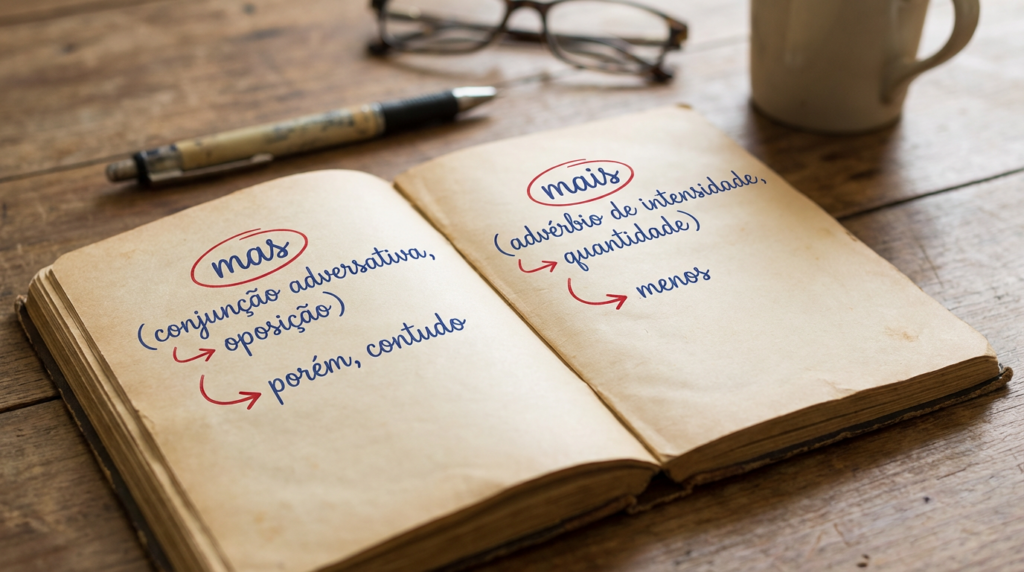 mas
(conjunção adversativa,
oposição)
porém, contudo
mais
(advérbio de intensidade,
quantidade)
menos